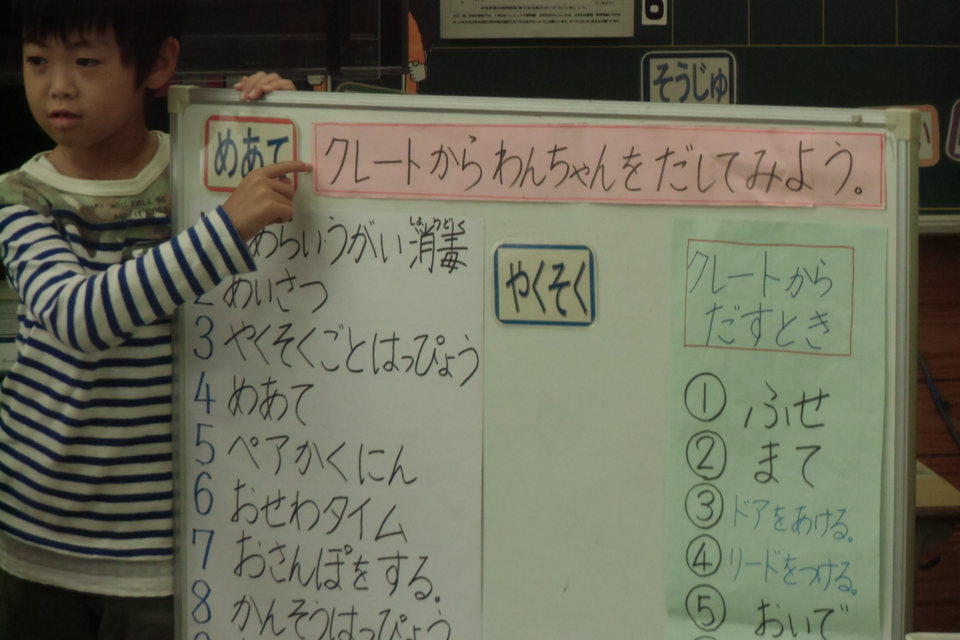 6
そうじゅ
めあて
クレートからわんちゃんをだしてみよう。
めらいうがい消毒
しょうどく
2 めいさつ
3 やくそくごとはっぴょう
4 めあて
5 ペアかくにん
6 おせわタイム
7 おさんぽをする。
8 かんそうはっぴょう
やくそく
クレートから
だすとき
① ふせ
② まて
③ ドアをあける。
④ リードをつける。
⑤ おいで